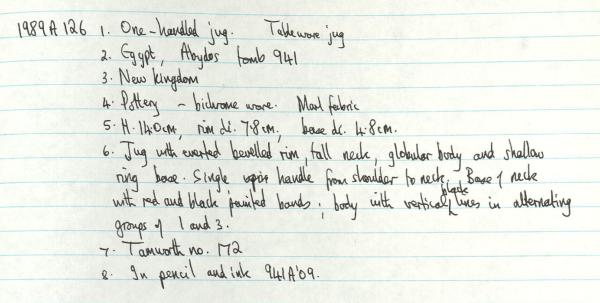 1989A126 1. One-handled jug. Tableware jug
2. Egypt, Abydos tomb 941
3. New Kingdom
4. Pottery - bichrome ware. Marl fabric
5. H. 14.0cm, rim di. 7.8cm, base di. 4.8cm.
6. Jug with everted bevelled rim, tall neck, globular body and shallow
ring base. Single handle from shoulder to neck. Base of neck
with red and black painted bands; body with vertical black lines in alternating
groups of 1 and 3.
7. Tamworth no. 172
8. In pencil and ink 941A'09.